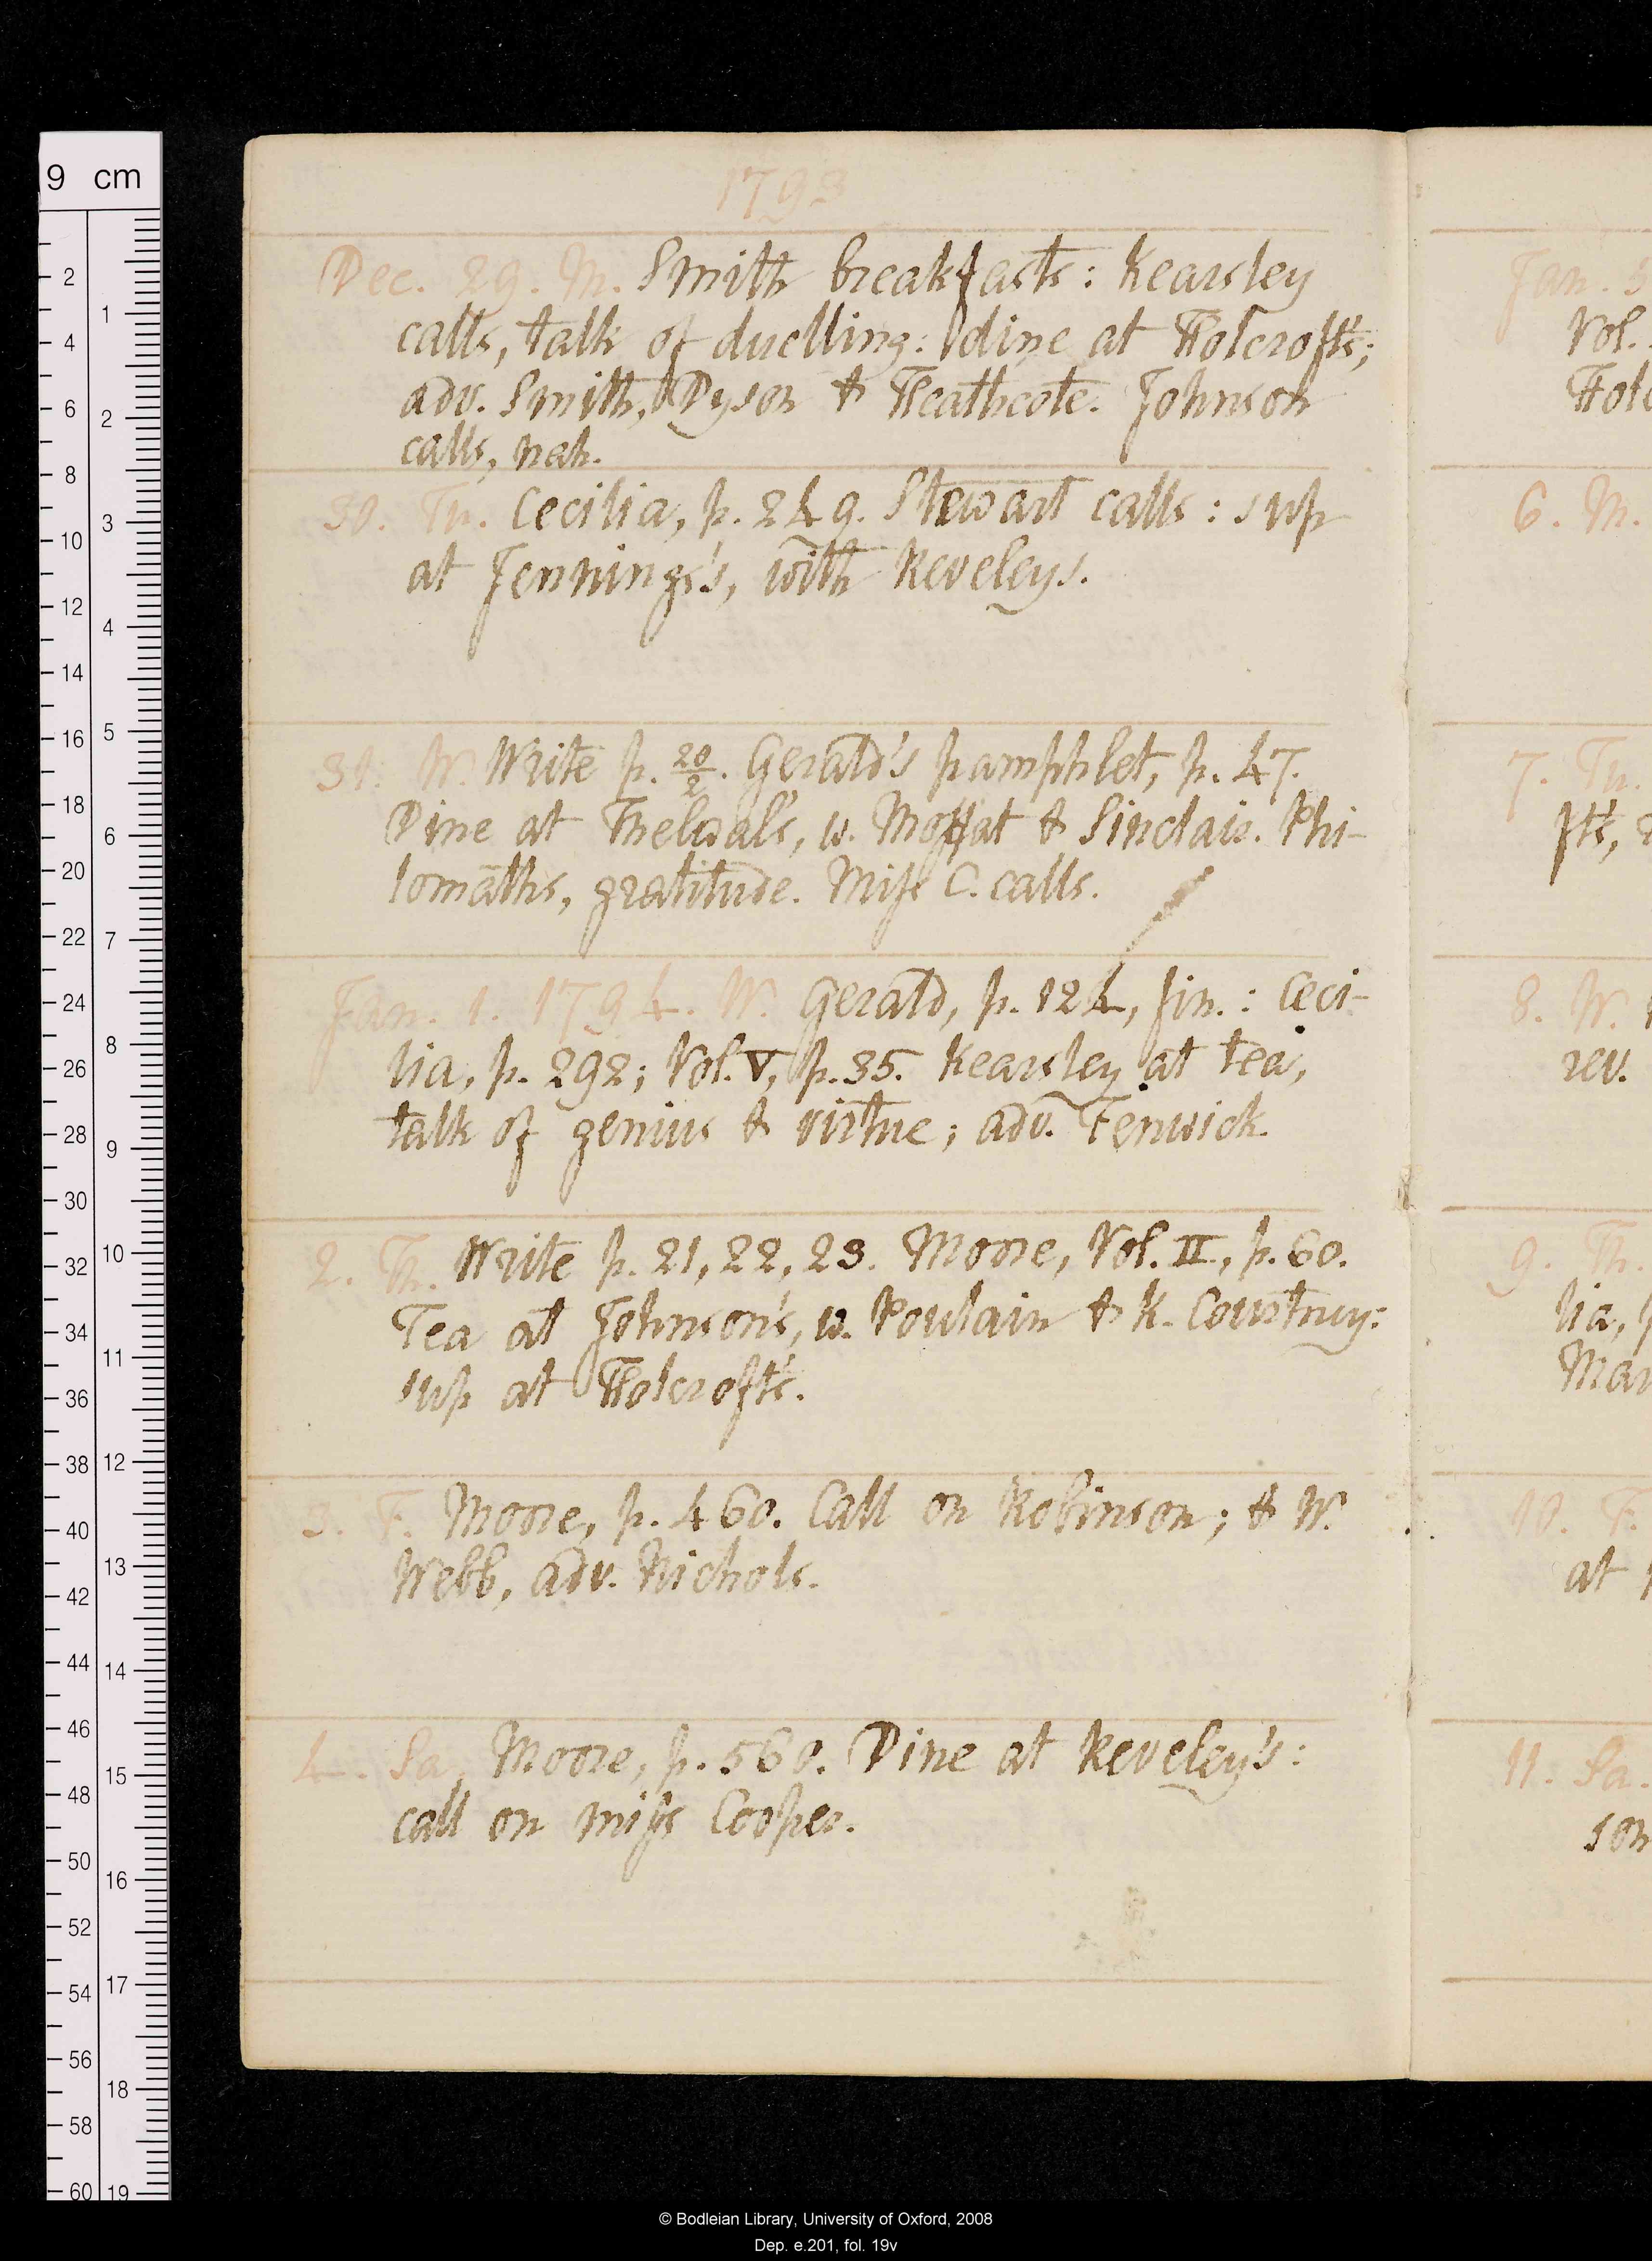 1793
Dec. 29. M. Smith breakfasts: Kearsley
calls, talk of duelling: dine at Holcroft's;
adv. Smith, Dyson & Heathcote. Johnson
calls, nah.
30. Tu. Cecilia, p. 249. Stewart calls: sup
at Jennings's, with Reveleys.
31. W. Write p. 20/2. Gerald's pamphlet, p. 47.
Dine at Thelwal's, w. Moffat & Sinclair. Phi-
lomaths, gratitude. Miss C. calls.
Jan. 1. 1794. W. Gerald, p. 124, fin.: Ceci-
lia, p. 292; Vol. V, p. 35. Kearsley at tea,
talk of genius & virtue; adv. Fenwick.
2. Th. Write p. 21, 22, 23. Moore, Vol. II, p. 60.
Tea at Johnson's, w. Poulain & K. Courtney:
sup at Holcroft's.
3. F. Moore, p. 460. Call on Robinson; & W.
Webb, adv. Nichols.
4. Sa. Moore, p. 560. Dine at Reveley's:
call on miss Cooper.
Jan. 5
Vol.
Holc
6. M.
7. Tu.
fts,
8. W.
rev.
9. Th.
lia,
Mar
10. F.
at
11. Sa.
son
9 cm
2
4
6
8
10
12
14
16
18
20
22
24
26
28
30
32
34
36
38
40
42
44
46
48
50
52
54
56
58
60
1
2
3
4
5
6
7
8
9
10
11
12
13
14
15
16
17
18
19
© Bodleian Library, University of Oxford, 2008
Dep. e.201, fol. 19v